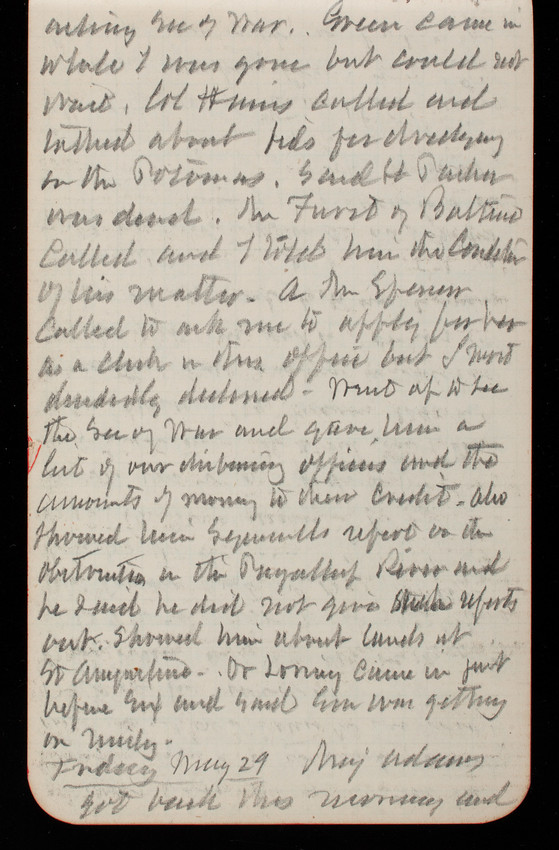 acting Sec of War. Green came in
while I was gone but could not
wait. Col Hains called and
talked about bids for dredging
on the Potomac. Said Lt Parker
was dead. Mr Furst of Baltimo
called and I told him the Condition
of his matter. A Mr Spencer
called to ask me to apply for her
as a clerk in this office but I most
decidedly declined - Went up to see
the Sec of War and gave him a
list of our disbursing officers and the
amounts of money to their credit - also
showed him report on the
obstructions in the Puyallup River and
he said he did not give such reports
out. Showed him about lands at
St Augustine - Dr Loring came in just
before six and said was getting
on nicely -
Friday May 29 Maj Adams
got back this morning and